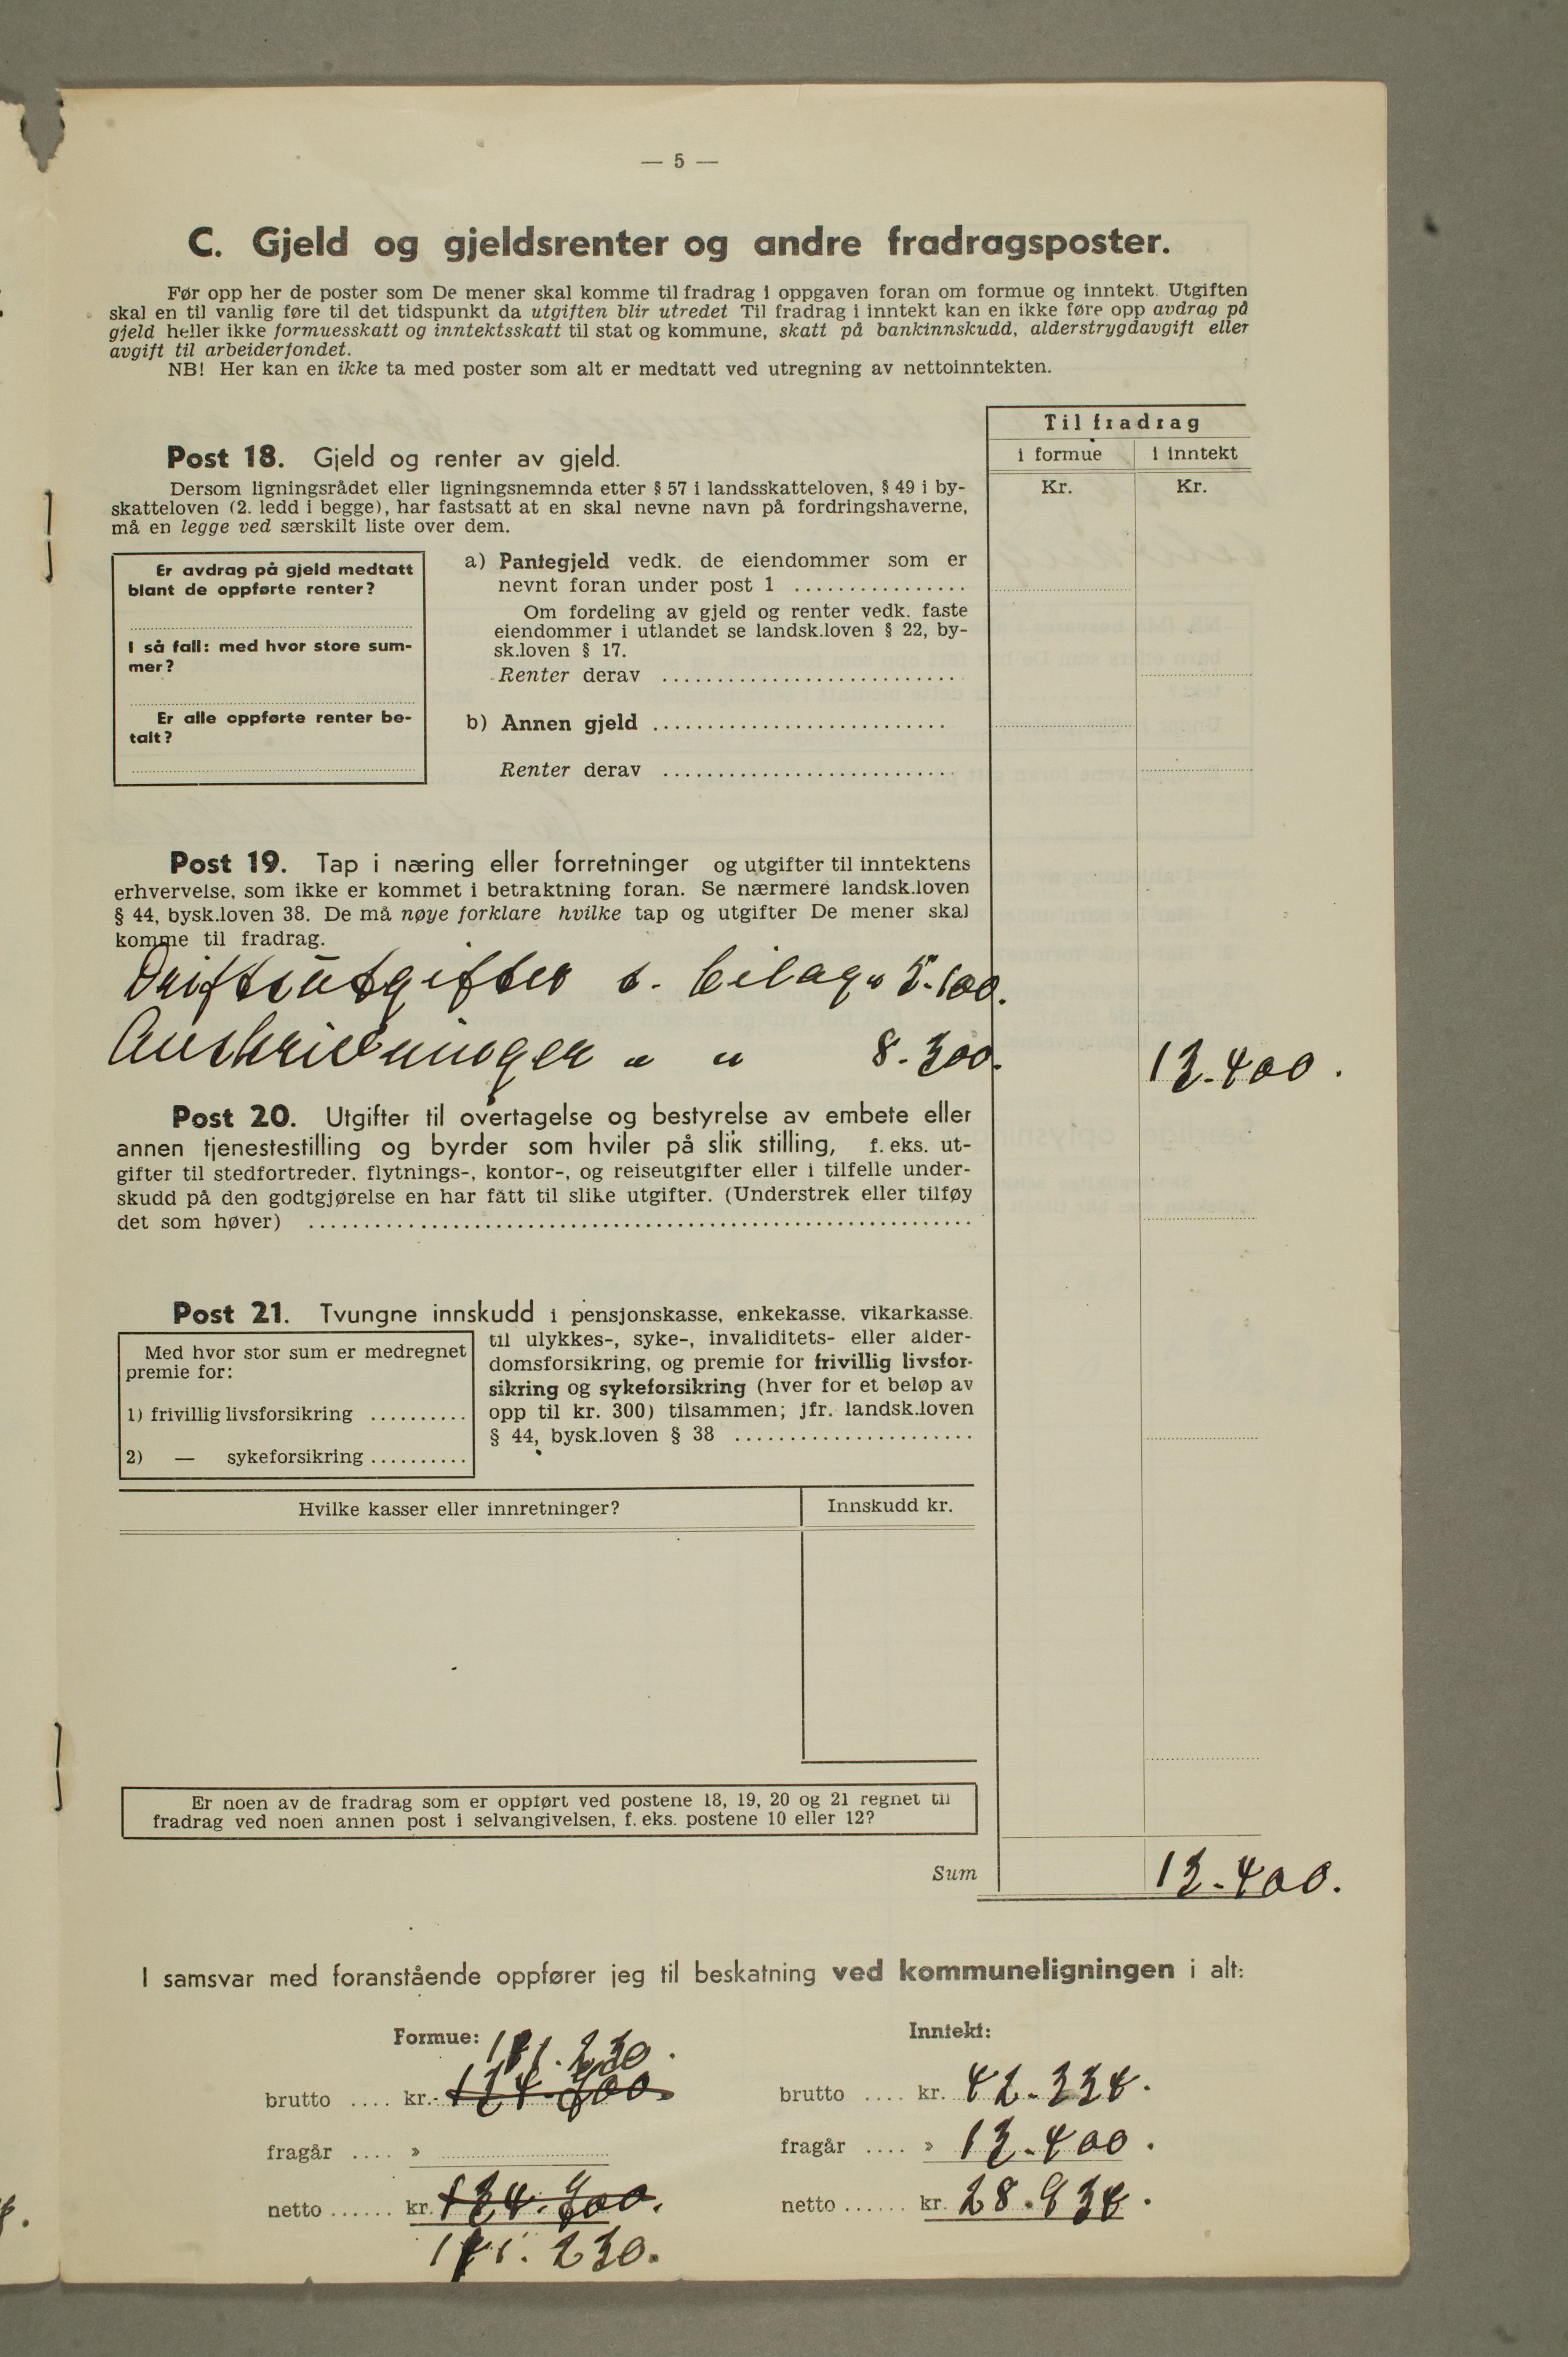 — 5 —
C. Gjeld og gjeldsrenter og andre fradragsposter.
Før opp her de poster som De mener skal komme til fradrag i oppgaven foran om formue og inntekt. Utgiften
skal en til vanlig føre til det tidspunkt da utgiften blir utredet Til fradrag i inntekt kan en ikke føre opp avdrag på
gjeld heller ikke formuesskatt og inntektsskatt til stat og kommune, skatt på bankinnskudd, alderstrygdavgift eller
avgift til arbeiderfondet.
NB! Her kan en ikke ta med poster som alt er medtatt ved utregning av nettoinntekten.
Til fradrag
i formue i inntekt
Kr. Kr.
Post 18. Gjeld og renter av gjeld.
Dersom ligningsrådet eller ligningsnemnda etter § 57 i landsskatteloven, § 49 i by-
skatteloven (2. ledd i begge), har fastsatt at en skal nevne navn på fordringshaverne,
må en legge ved særskilt liste over dem.
Er avdrag på gjeld medtatt
blant de oppførte renter?
I så fall: med hvor store sum-
mer?
Er alle oppførte renter be-
talt?
a) Pantegjeld vedk. de eiendommer som er
nevnt foran under post 1 ................
Om fordeling av gjeld og renter vedk. faste
eiendommer i utlandet se landsk.loven § 22, by-
sk.loven § 17.
Renter derav ...........................
b) Annen gjeld ...........................
Renter derav ...........................
Post 19. Tap i næring eller forretninger og utgifter til inntektens
erhvervelse, som ikke er kommet i betraktning foran. Se nærmere landsk.loven
§ 44, bysk.loven 38. De må nøye forklare hvilke tap og utgifter De mener skal
komme til fradrag.
Driftsutgifter s. bilag 5.100.
Avskrivninger " " 8.300. 13.400.
Post 20. Utgifter til overtagelse og bestyrelse av embete eller
annen tjenestestilling og byrder som hviler på slik stilling, f. eks. ut-
gifter til stedfortreder, flytnings-, kontor-, og reiseutgifter eller i tilfelle under-
skudd på den godtgjørelse en har fått til slike utgifter. (Understrek eller tilføy
det som høver) ..............................................................
Post 21. Tvungne innskudd i pensjonskasse, enkekasse, vikarkasse.
til ulykkes-, syke-, invaliditets- eller alder-
domsforsikring, og premie for frivillig livsfor-
sikring og sykeforsikring (hver for et beløp av
opp til kr. 300) tilsammen; jfr. landsk.loven
§ 44, bysk.loven § 38 ......................
Med hvor stor sum er medregnet
premie for:
1) frivillig livsforsikring ..........
2) — sykeforsikring ..........
Hvilke kasser eller innretninger? Innskudd kr.
Er noen av de fradrag som er oppført ved postene 18, 19, 20 og 21 regnet til
fradrag ved noen annen post i selvangivelsen, f. eks. postene 10 eller 12?
Sum 13.400.
I samsvar med foranstående oppfører jeg til beskatning ved kommuneligningen i alt:
Formue:
brutto .... kr.
fragår .... »
netto ...... kr.
Inntekt:
brutto .... kr. 42.334.
fragår .... » 13.400.
netto ...... kr. 28.934.